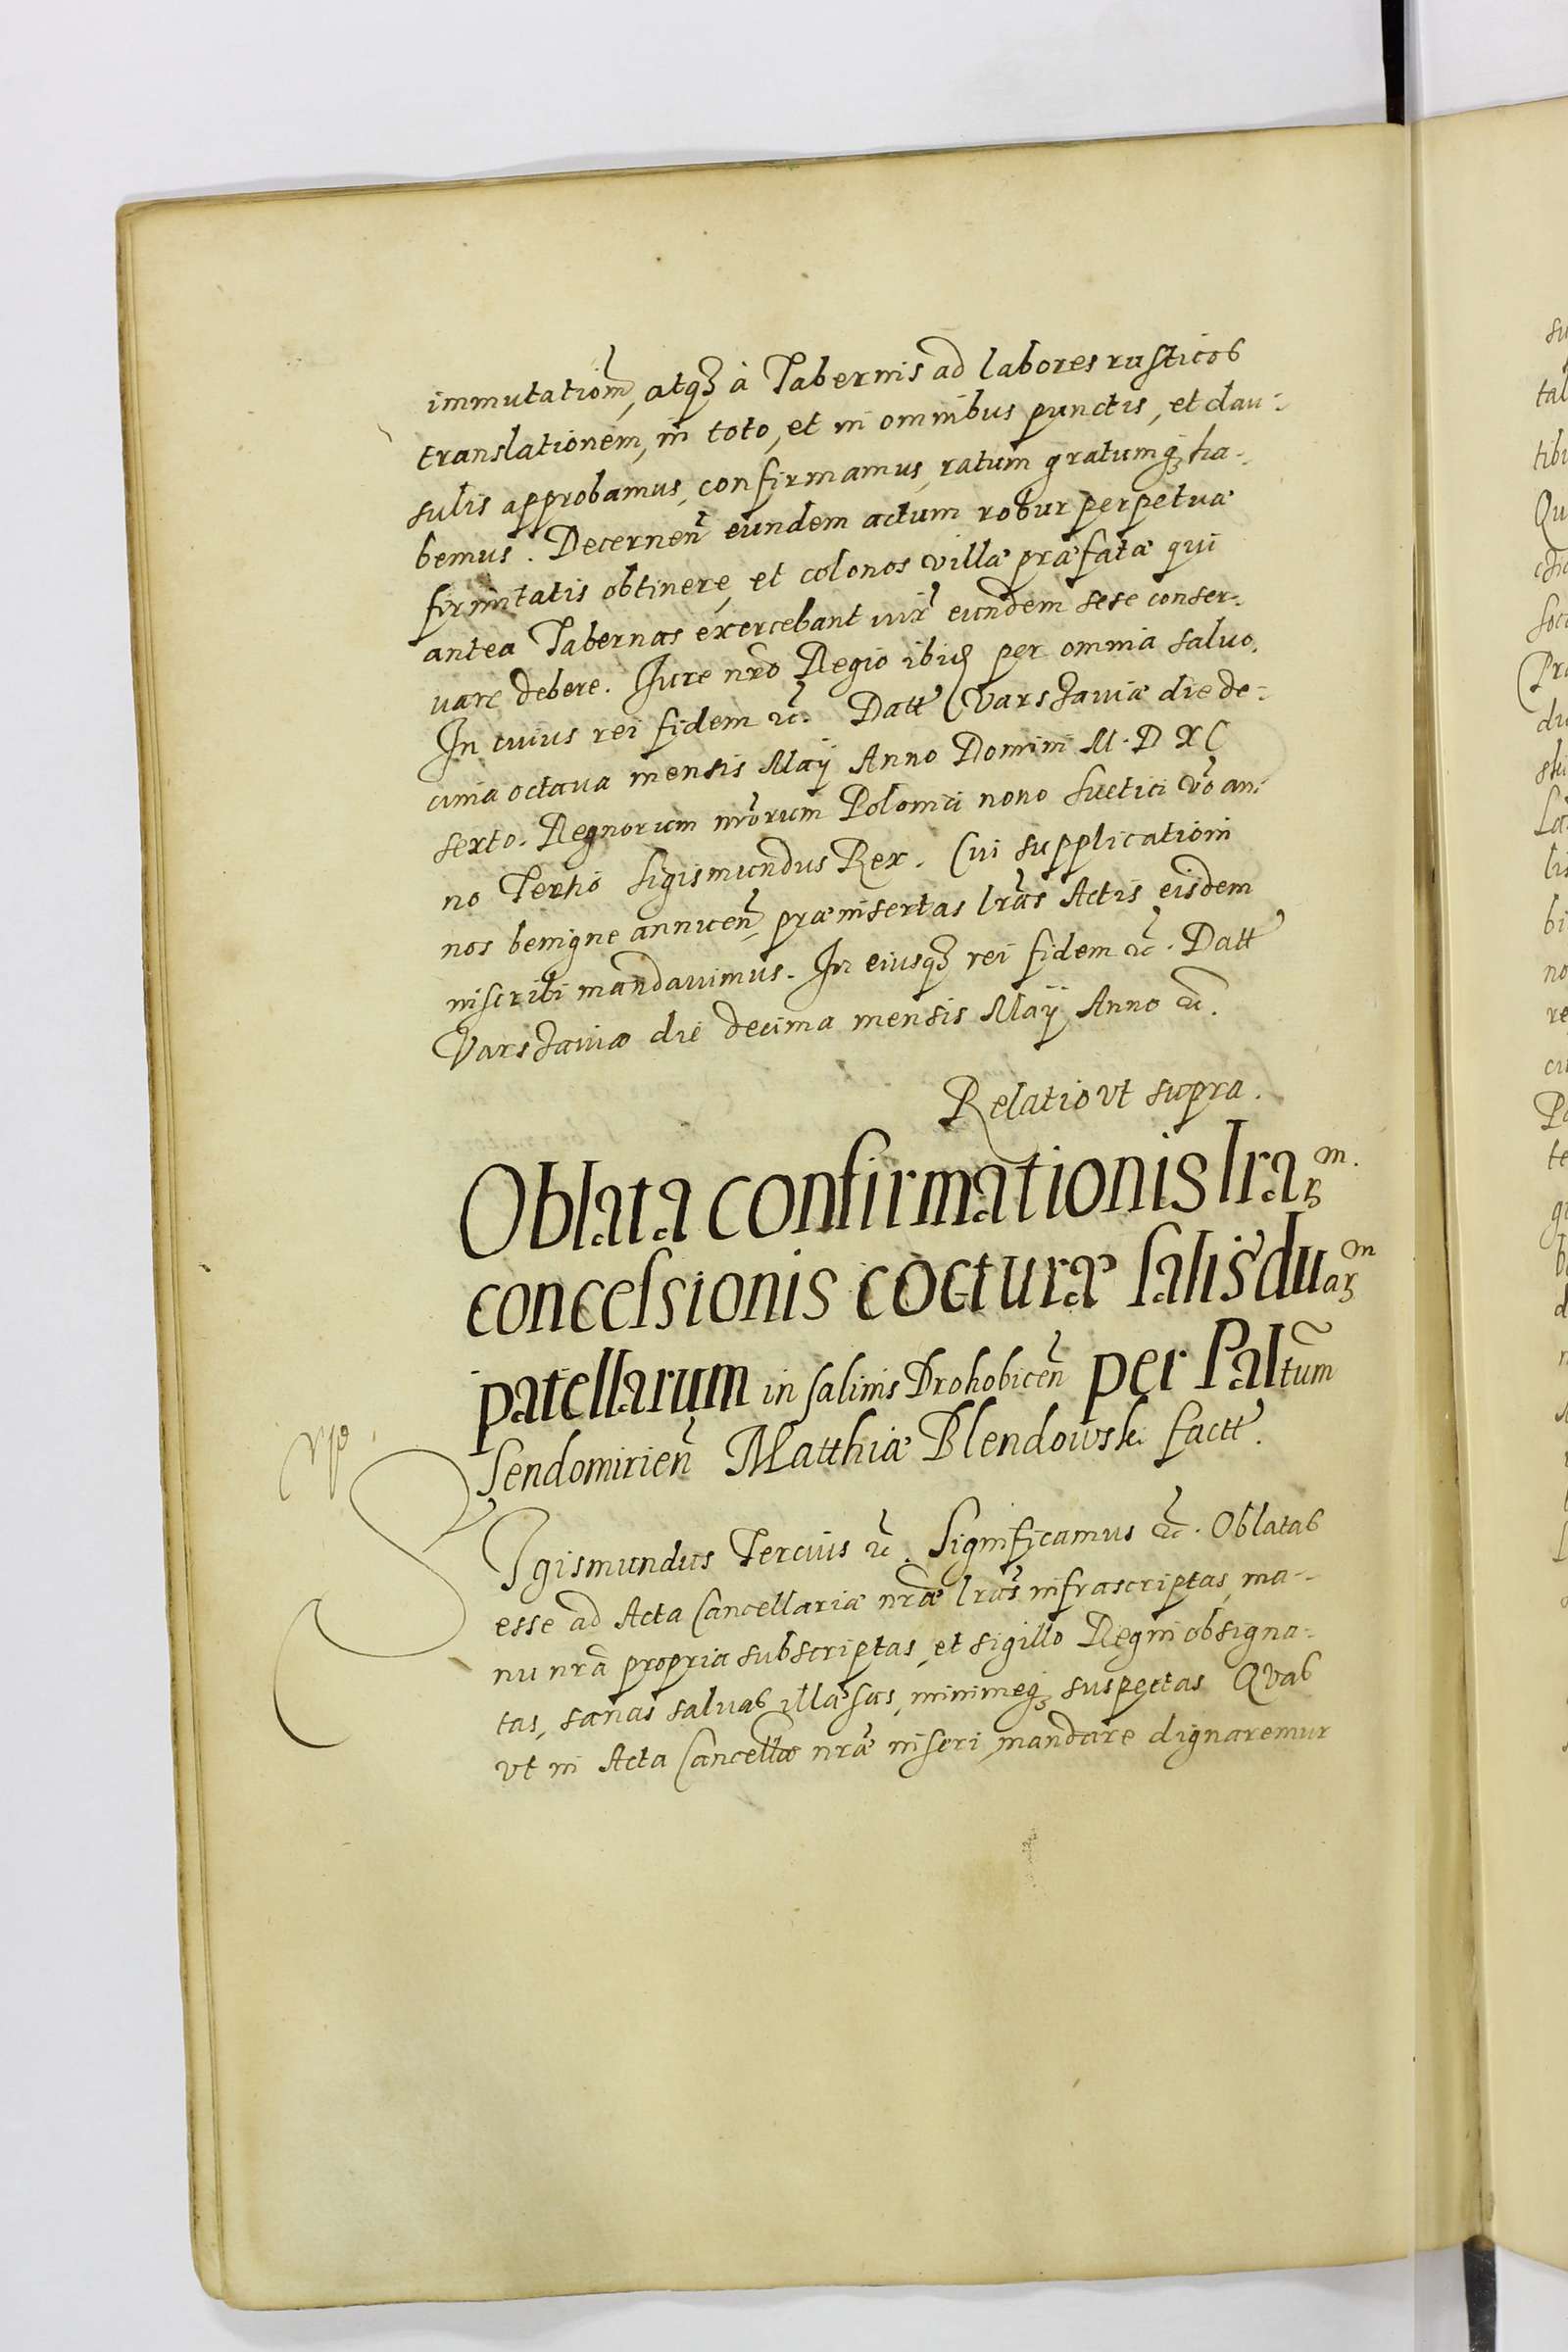 immutatiom̃, atqꝫ à Tabernis ad labores rusticos
translationem, in toto, et in omnibus punctis, et clau-
sulis approbamus, confirmamus, ratum gratumqꝫ ha-
bemus. Decernen̄ eundem actum robur perpetuæ
firmitatis obtinere, et colonos villæ præfatæ qui
antea Tabernas exercebant eundem sese conser-
vare debere. Iure nr̃o Regio ibid per omnia salvo.
In cuius rei fidem ꝛc̃. Datt Varsʒaviæ die de-
cima octava mensis Maÿ Anno Domini M. D XC
sexto. Regnorum nr̃orum Poloniæ nono Suetici ṽo an-
no Tertio Sigismundus Rex. Cui supplicationi
nos benigne annuen̄, præinsertas lr̃as Actis eisdem
inscribi mandavimus. In eiusqꝫ rei fidem ꝛc̃. Datt
Varsʒaviæ die decima mensis Maÿ Anno ꝛc̃.
Relatio vt supra.
Oblata confirmationis lraꝝ m.
concessionis cocturæ salis duaꝝ m
patellarum in salinis Drohobicen̄ per Paltum̃
Sendomirien̄ Matthiæ Blendowsk. factt.
SIgismundus Tercius ꝛc̃. Significamus ꝛc̃. Oblatas
esse ad Acta Cancellariæ nr̃æ lr̃as infrascriptas, ma-
nu nr̃a propria subscriptas, et sigillo Regni obsigna-
tas, sanas salvas illæsas, minimeqꝫ suspectas Qvas
vt in Acta Cancellæ nr̃æ inseri mandare dignaremur